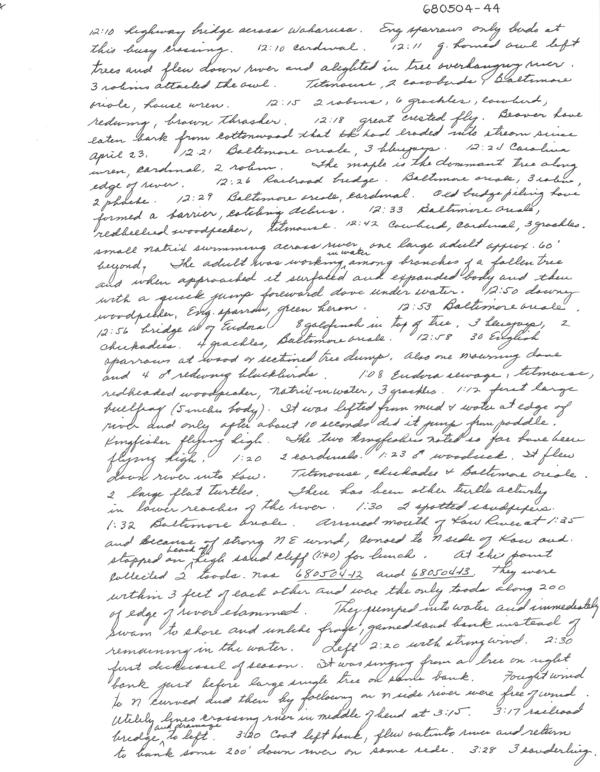 680504-44
12:10 highway bridge across Wakarusa. Eng sparrows only birds at
this busy crossing. 12:10 cardinal. 12:11 g. horned owl left
trees and flew down river and alighted in tree overhanging river.
3 robins attacked the owl. Titmouse, 2 cowbirds & Baltimore
oriole, house wren. 12:15 2 robins, 6 grackles, cowbird,
redwing, brown thrasher. 12:18 great crested fly. Beaver have
eaten bark from cottonwood that had eroded into stream since
April 23. 12:21 Baltimore oriole, 3 bluejays. 12:24 Carolina
wren, cardinal, 2 robin. The maple is the dominant tree along
edge of river. 12:26 Railroad bridge. Baltimore oriole, 3 robins,
2 phoebe. 12:29 Baltimore oriole, cardinal. Old bridge piling have
formed a barrier, catching debris. 12:33 Baltimore oriole,
redbellied woodpecker, titmouse. 12:42 Cowbird, cardinal, 3 grackles.
small natrix swimming across river, one large adult approx. 60'
beyond. The adult was working in water among branches of a fallen tree
and when approached it surfaced and expanded body and then
with a quick jump foreward dove under water. 12:50 downy
woodpecker, Eng. sparrow, green heron. 12:53 Baltimore oriole.
12:56 bridge W of Eudora 8 goldfinch in top of tree, 3 bluejays, 2
chickadees. 4 grackles, Baltimore oriole. 12:58 30 English
sparrows at wood or sectioned tree dump. Also one mourning dove
and 4 ♂ redwing blackbirds. 1:08 Eudora sewage, titmouse,
redheaded woodpecker, Natrix in water, 3 grackles. 1:12 first large
bullfrog (5 inches body). It was lifted from mud & water at edge of
river and only after about 10 seconds did it jump from paddle.
Kingfisher flying high. The two kingfishers noted so far have been
flying high. 1:20 2 cardinals. 1:23 ♂ woodduck. It flew
down river into Kaw. Titmouse, chickadee & Baltimore oriole.
2 large flat turtles. There has been other turtle activity
in lower reaches of the river. 1:30 2 spotted sandpipers.
1:32 Baltimore oriole. Arrived mouth of Kaw River at 1:35
and because of strong NE wind, canoed to N side of Kaw and
stopped on beach of high sand cliff (1:40) for lunch. At this point
collected 2 toads. nos 680504-12 and 680504-13. They were
within 3 feet of each other and were the only toads along 200
of edge of river examined. They jumped into water and immediately
swam to shore and unlike frogs, gained sand bank instead of
remaining in the water. Left 2:20 with strong wind. 2:30
first dickcissel of season. It was singing from a tree on right
bank just before large single tree on same bank. Fought wind
to N curved and then by following on N side river were free of wind.
Utility lines crossing river in middle of bend at 3:15. 3:17 railroad
bridge and drainage to left. 3:20 Coot left bank, flew out into river and return
to bank some 200' down river on same side. 3:28 3 sanderling.